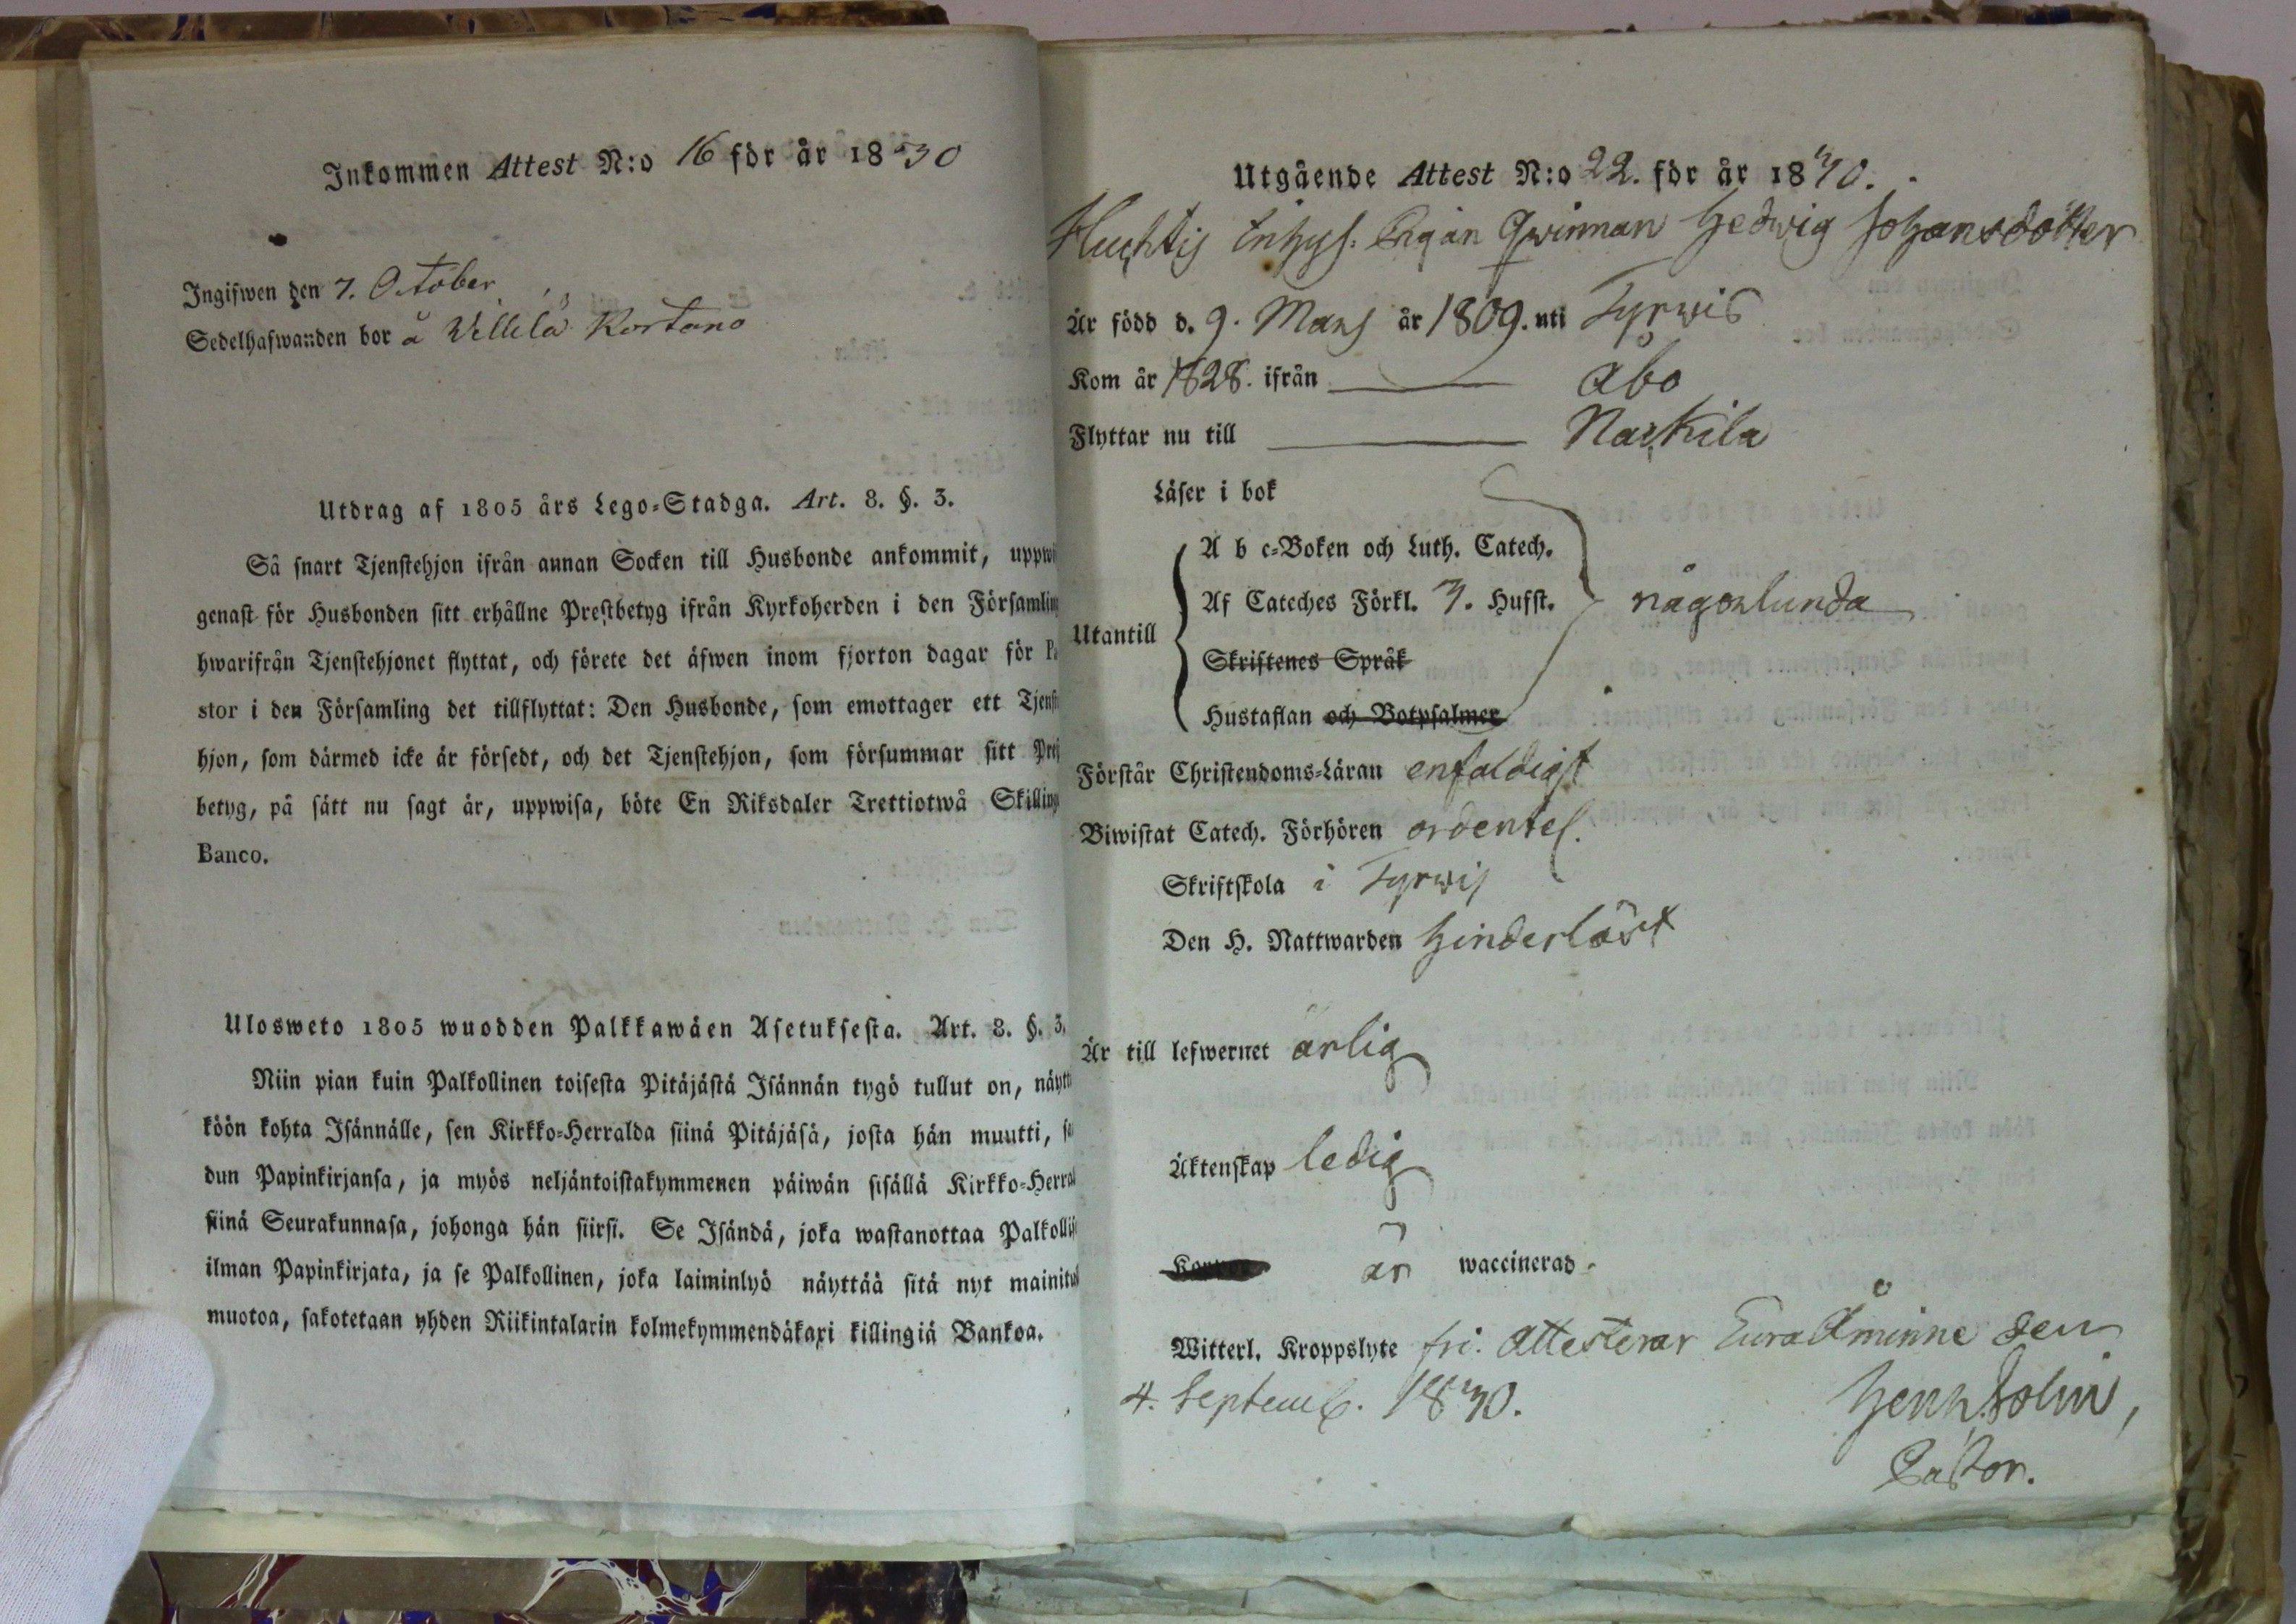 Inkommen Attest N:o 16 för år 1830
Ingifwen den 7. October
Sedelhafwanden bor å Villilä Kortano
Utdrag af 1805 års Lego-Stadga. Art. 8. §. 3.
Så snart Tjenstehjon ifrån annan Socken till Husbonde ankommit, uppwi
genast för Husbonden sitt erhållne Prestbetyg ifrån Kyrkoherden i den Församling
hwarifrån Tjenstehjonet flyttat, och förete det äfwen inom fjorton dagar för Pa
stor i den Församling det tillflyttat: Den Husbonde, som emottager ett Tjenst
hjon, som därmed icke är försedt, och det Tjenstehjon, som försummar sitt Prest
betyg, på sätt nu sagt är, uppwisa, böte En Riksdaler Trettiotwå Skilling
Banco.
Ulosweto 1805 wuodden Palkkawäen Asetuksesta. Art. 8. §. 3.
Niin pian kuin Palkollinen toisesta Pitäjästä Isännän tygö tullut on, näytt
köön kohta Isännälle, sen Kirkko-Herralda siinä Pitäjäsä, josta hän muutti, sa
dun Papinkirjansa, ja myös neljäntoistakymmenen päiwän sisällä Kirkko-Herral
siinä Seurakunnasa, johonga hän siirsi. Se Isändä, joka wastanottaa Palkollis
ilman Papinkirjata, ja se Palkollinen, joka laiminlyö näyttää sitä nyt mainitul
muotoa, sakotetaan yhden Riikintalarin kolmekymmendäkaxi killingiä Bankoa.
Utgående Attest N:o 22. för år 1830.
Huchtis Inhys. Pigan Qwinnan Hedwig Johansdotter
Är född d. 9. Mars år 1809. uti Tyrwis
Kom år 1828. ifrån Åbo
Flyttar nu till Nackila
Läser i bok
A b c-Boken och Luth. Catech.
Af Cateches Förkl. 3. Hufst. någorlunda
Utantill
Skriftenes Språk
Hustaflan och Botpsalmer
Förstår Christendoms-Läran enfaldigt
Biwistat Catech. Förhören ordentel.
Skriftskola i Tyrwis
Den H. Nattwarden hinderlöst
Är till lefwernet ärlig
Äktenskap ledig
är waccinerad.
Witterl. Kroppslyte fri. Attesterar Eura Åminne den
4. Septemb. 1830. Henr. Solin,
Pastor.